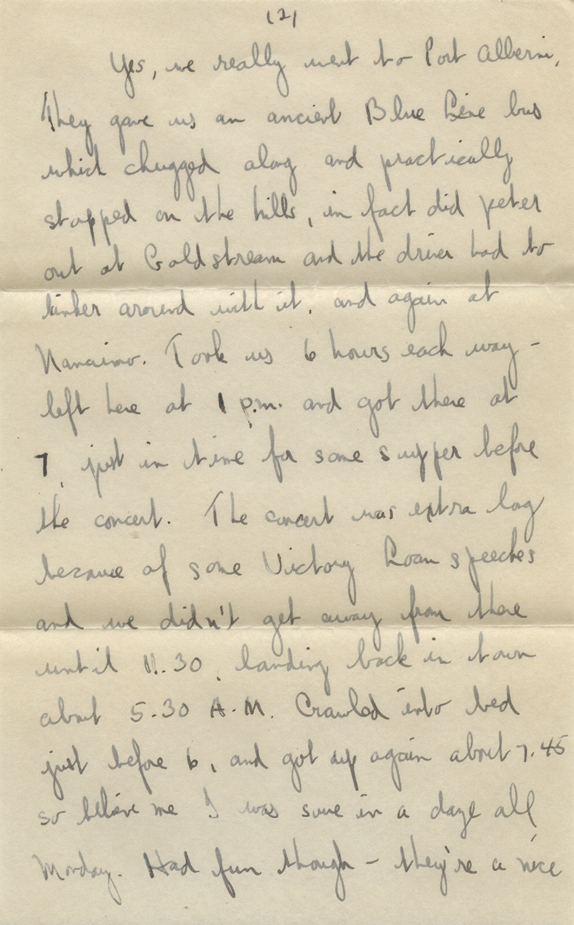 (2)
Yes, we really went to Port Alberni,
They gave us an ancient Blue Line bus
which chugged along and practically
stopped on the hills, in fact did peter
out at Goldstream and the driver had to
tinker around with it, and again at
Nanaimo. Took us 6 hours each way -
left here at 1 p.m. and got there at
7, just in time for some supper before
the concert. The concert was extra long
because of some Victory Loan speeches
and we didn't get away from there
until 11.30, landing back in town
about 5.30 A.M. Crawled into bed
just before 6, and got up again about 7.45
so believe me I was sure in a daze all
Monday. Had fun though - they're a nice